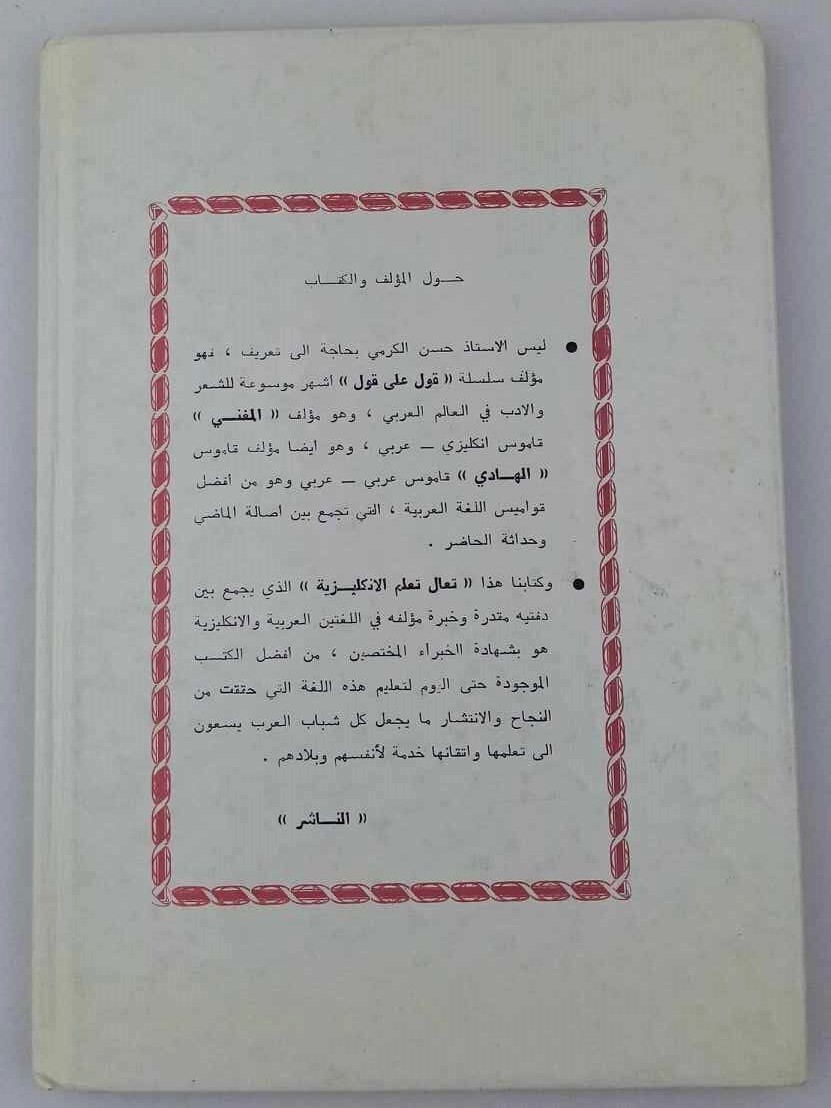 حــول المؤلف والكتــاب
● ليس الاستاذ حسن الكرمي بحاجة الى تعريف ، فهو
مؤلف سلسلة « قول على قول » أشهر موسوعة للشعر
والادب في العالم العربي ، وهو مؤلف « المغنــي »
قاموس انكليزي — عربي ، وهو ايضا مؤلف قاموس
« الهــادي » قاموس عربي — عربي وهو من أفضل
قواميس اللغة العربية ، التي تجمع بين اصالة الماضي
وحداثة الحاضر .
● وكتابنا هذا « تعال تعلم الانكليــزية » الذي يجمع بين
دفتيه مقدرة وخبرة مؤلفه في اللغتين العربية والانكليزية
هو بشهادة الخبراء المختصين ، من افضل الكتــب
الموجودة حتى اليوم لتعليم هذه اللغة التي حققت من
النجاح والانتشار ما يجعل كل شباب العرب يسعون
الى تعلمها واتقانها خدمة لأنفسهم وبلادهم .
« النــاشر »